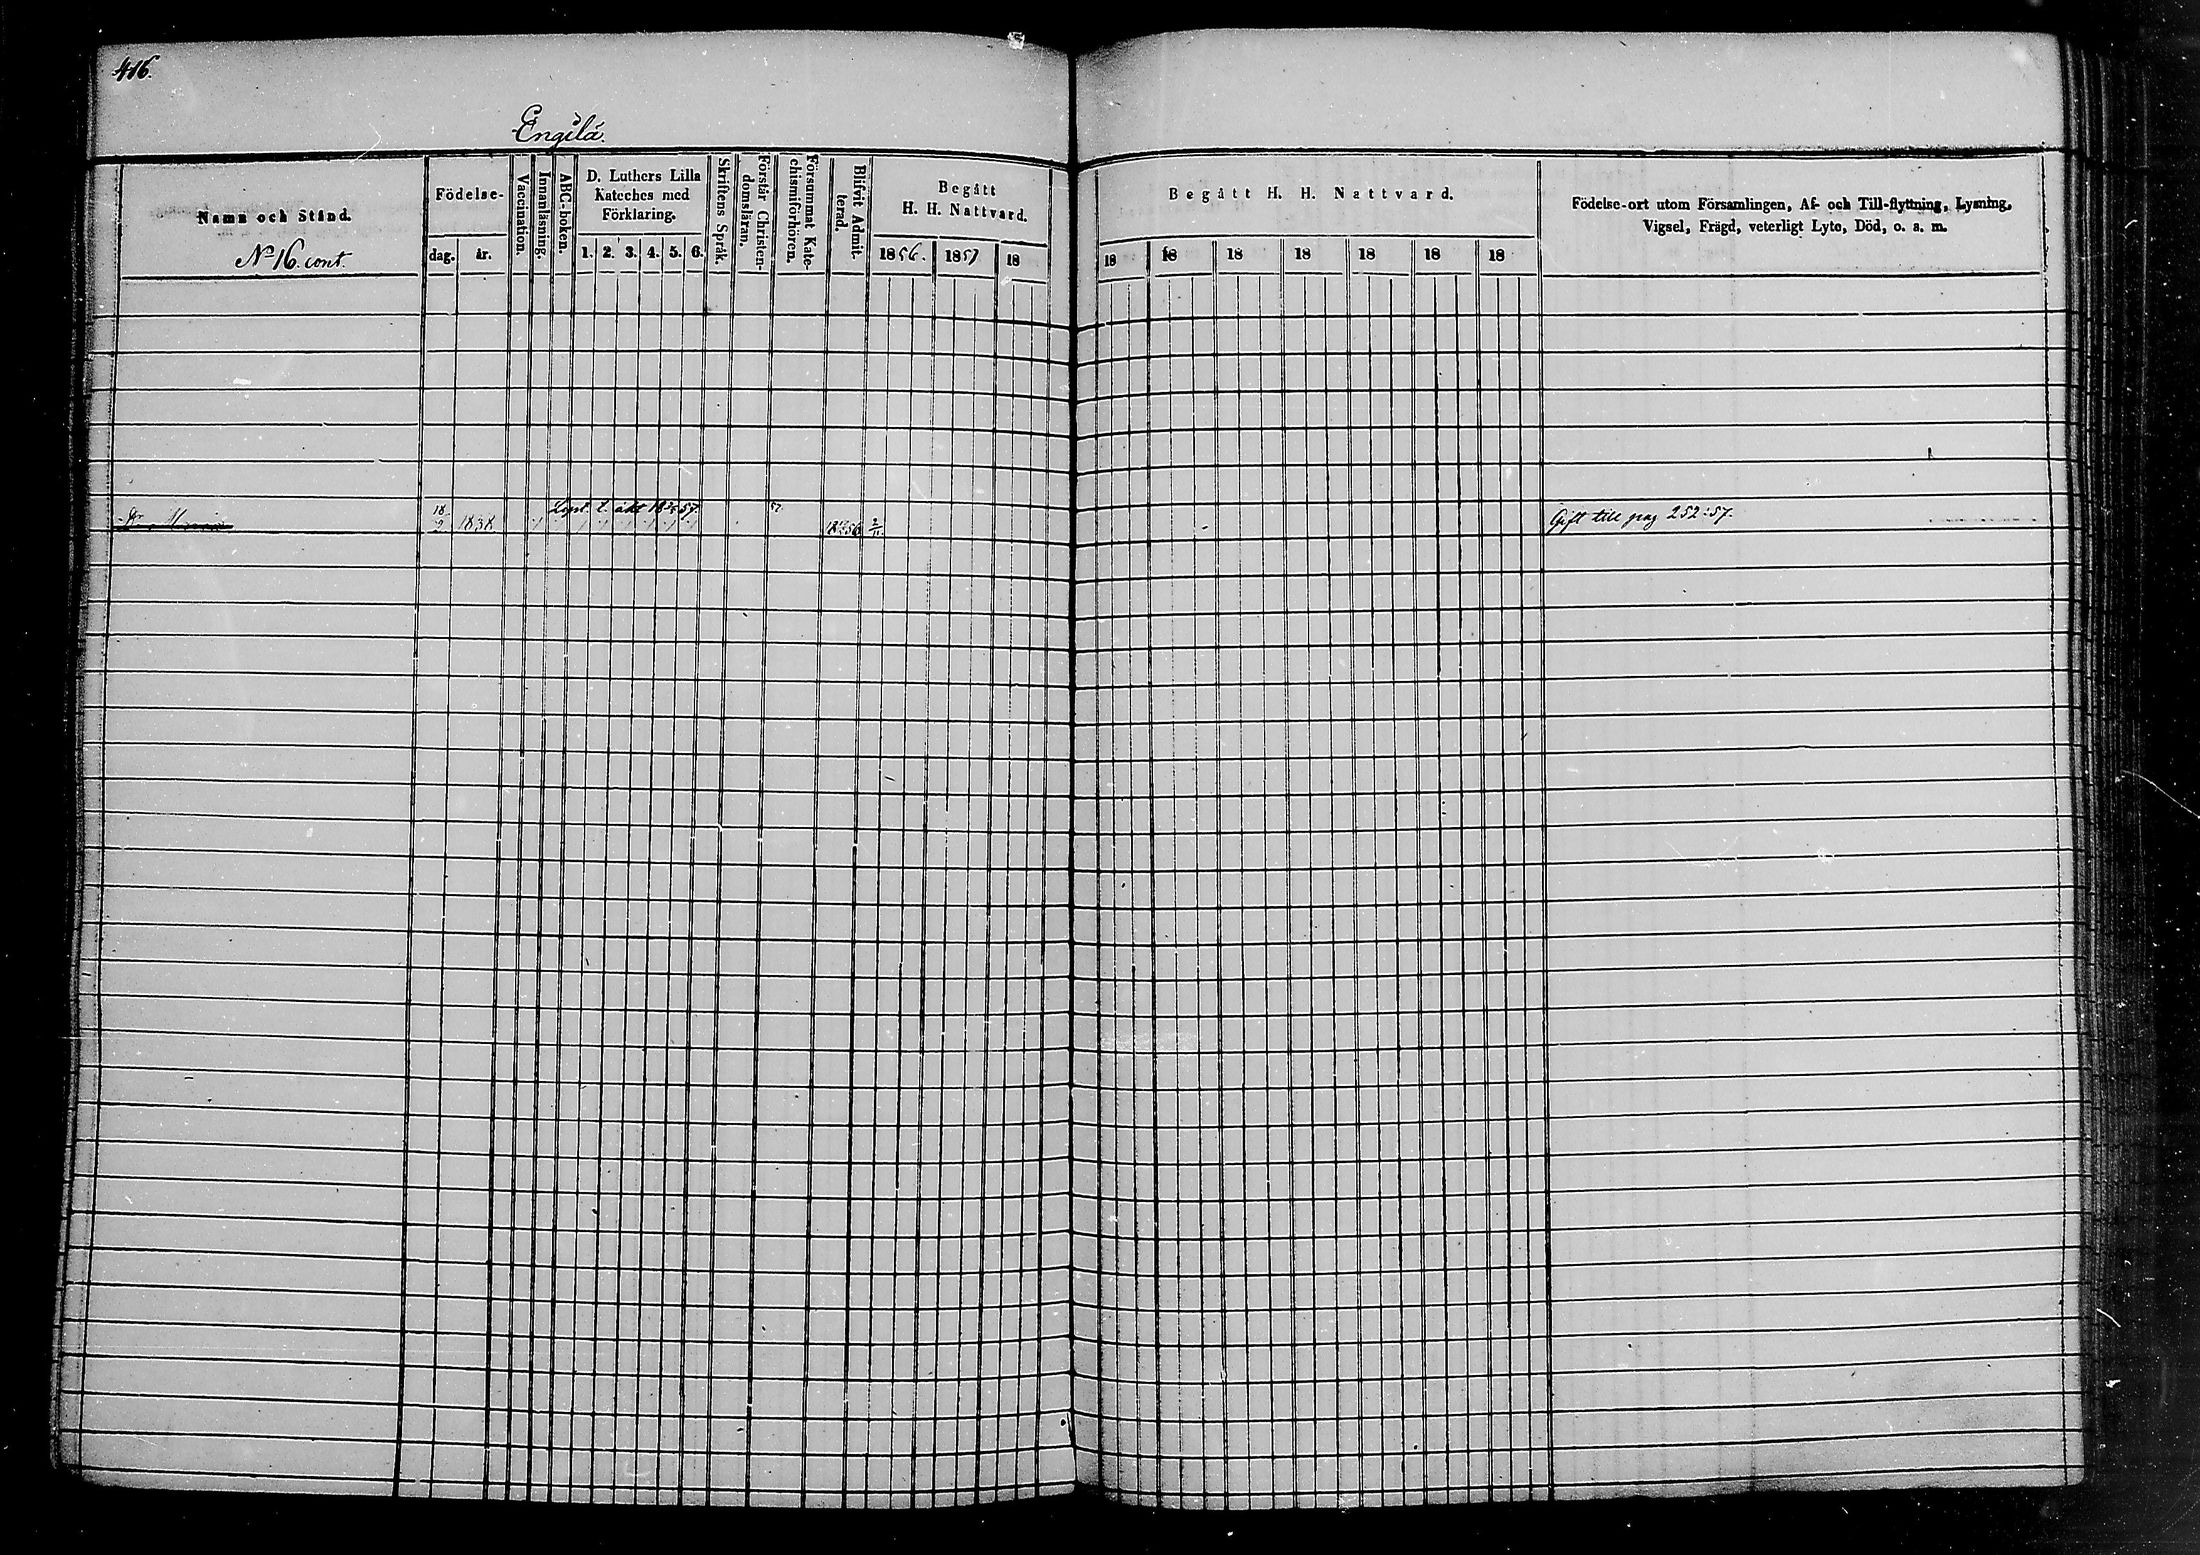 416.
Engilä.
Namn och Stånd.
No 16. cont.
Födelse-
dag.
år.
Vaccination.
Innanläsning.
ABC-boken.
D. Luthers Lilla
Kateches med
Förklaring.
1. 2. 3. 4. 5. 6.
Skriftens Språk.
Förstår Christen-
domsläran.
Försummat Kate-
chismiförhören.
Blifvit Admit-
terad.
Begått
H. H. Nattvard.
1856. 1857 18
Begått H. H. Nattvard.
18 18 18 18 18 18 18
Födelse-ort utom Församlingen, Af- och Till-flyttning, Lysning,
Vigsel, Frägd, veterligt Lyte, Död, o. a. m.
Lyst. t. äkt 18 57
57
Dr Maria 18/2 1838 56 2/11 Gift till pag 252:57.